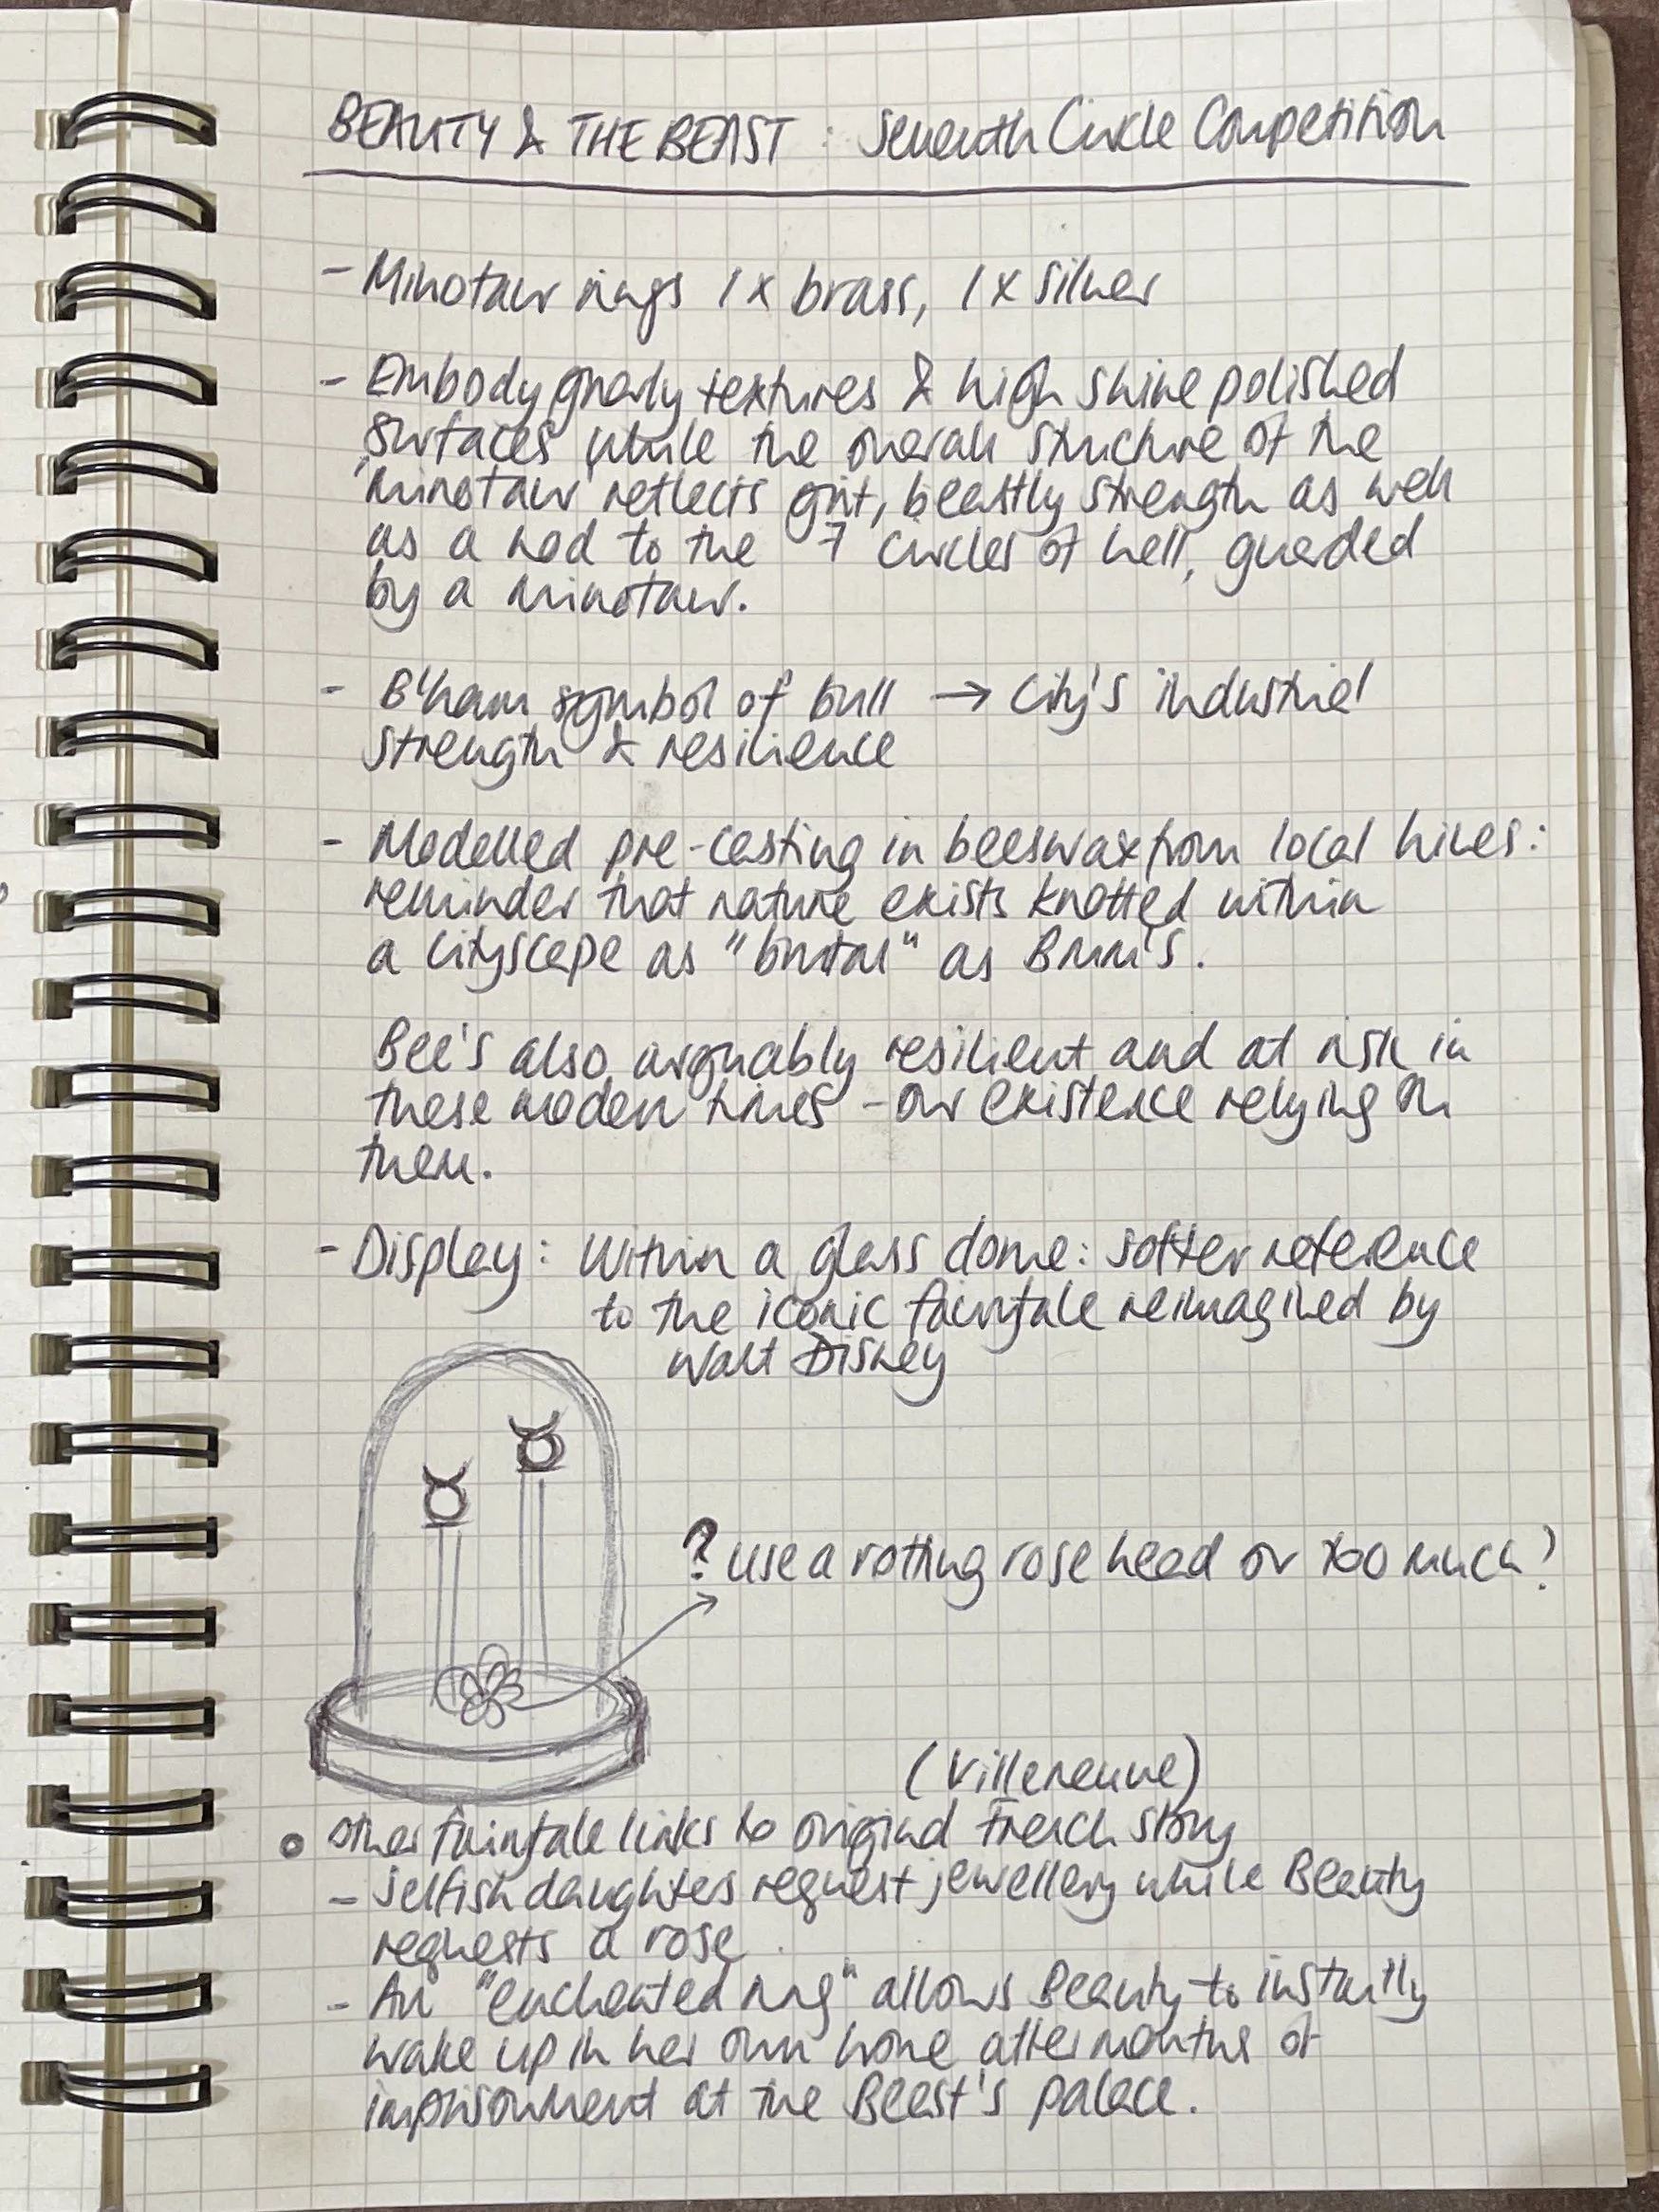 BEAUTY & THE BEAST : Seventh Circle Competition
- Minotaur rings 1x brass, 1x silver
- Embody gnarly textures & high shine polished
surfaces while the overall structure of the
minotaur reflects grit, beastly strength as well
as a nod to the 7 circles of hell, guarded
by a minotaur.
- B'ham symbol of bull → City's industrial
strength & resilience
- Modelled pre-casting in beeswax from local hives:
reminder that nature exists knotted within
a cityscape as "brutal" as Brum's.
Bee's also arguably resilient and at risk in
these modern times - our existence relying on
them.
- Display: Within a glass dome: softer reference
to the iconic fairytale reimagined by
Walt Disney
? use a rotting rose head or too much?
(Villeneuve)
• other fairytale links to original French story
- selfish daughters request jewellery while Beauty
requests a rose.
- An "enchanted ring" allows Beauty to instantly
wake up in her own home after months of
imprisonment at the Beast's palace.